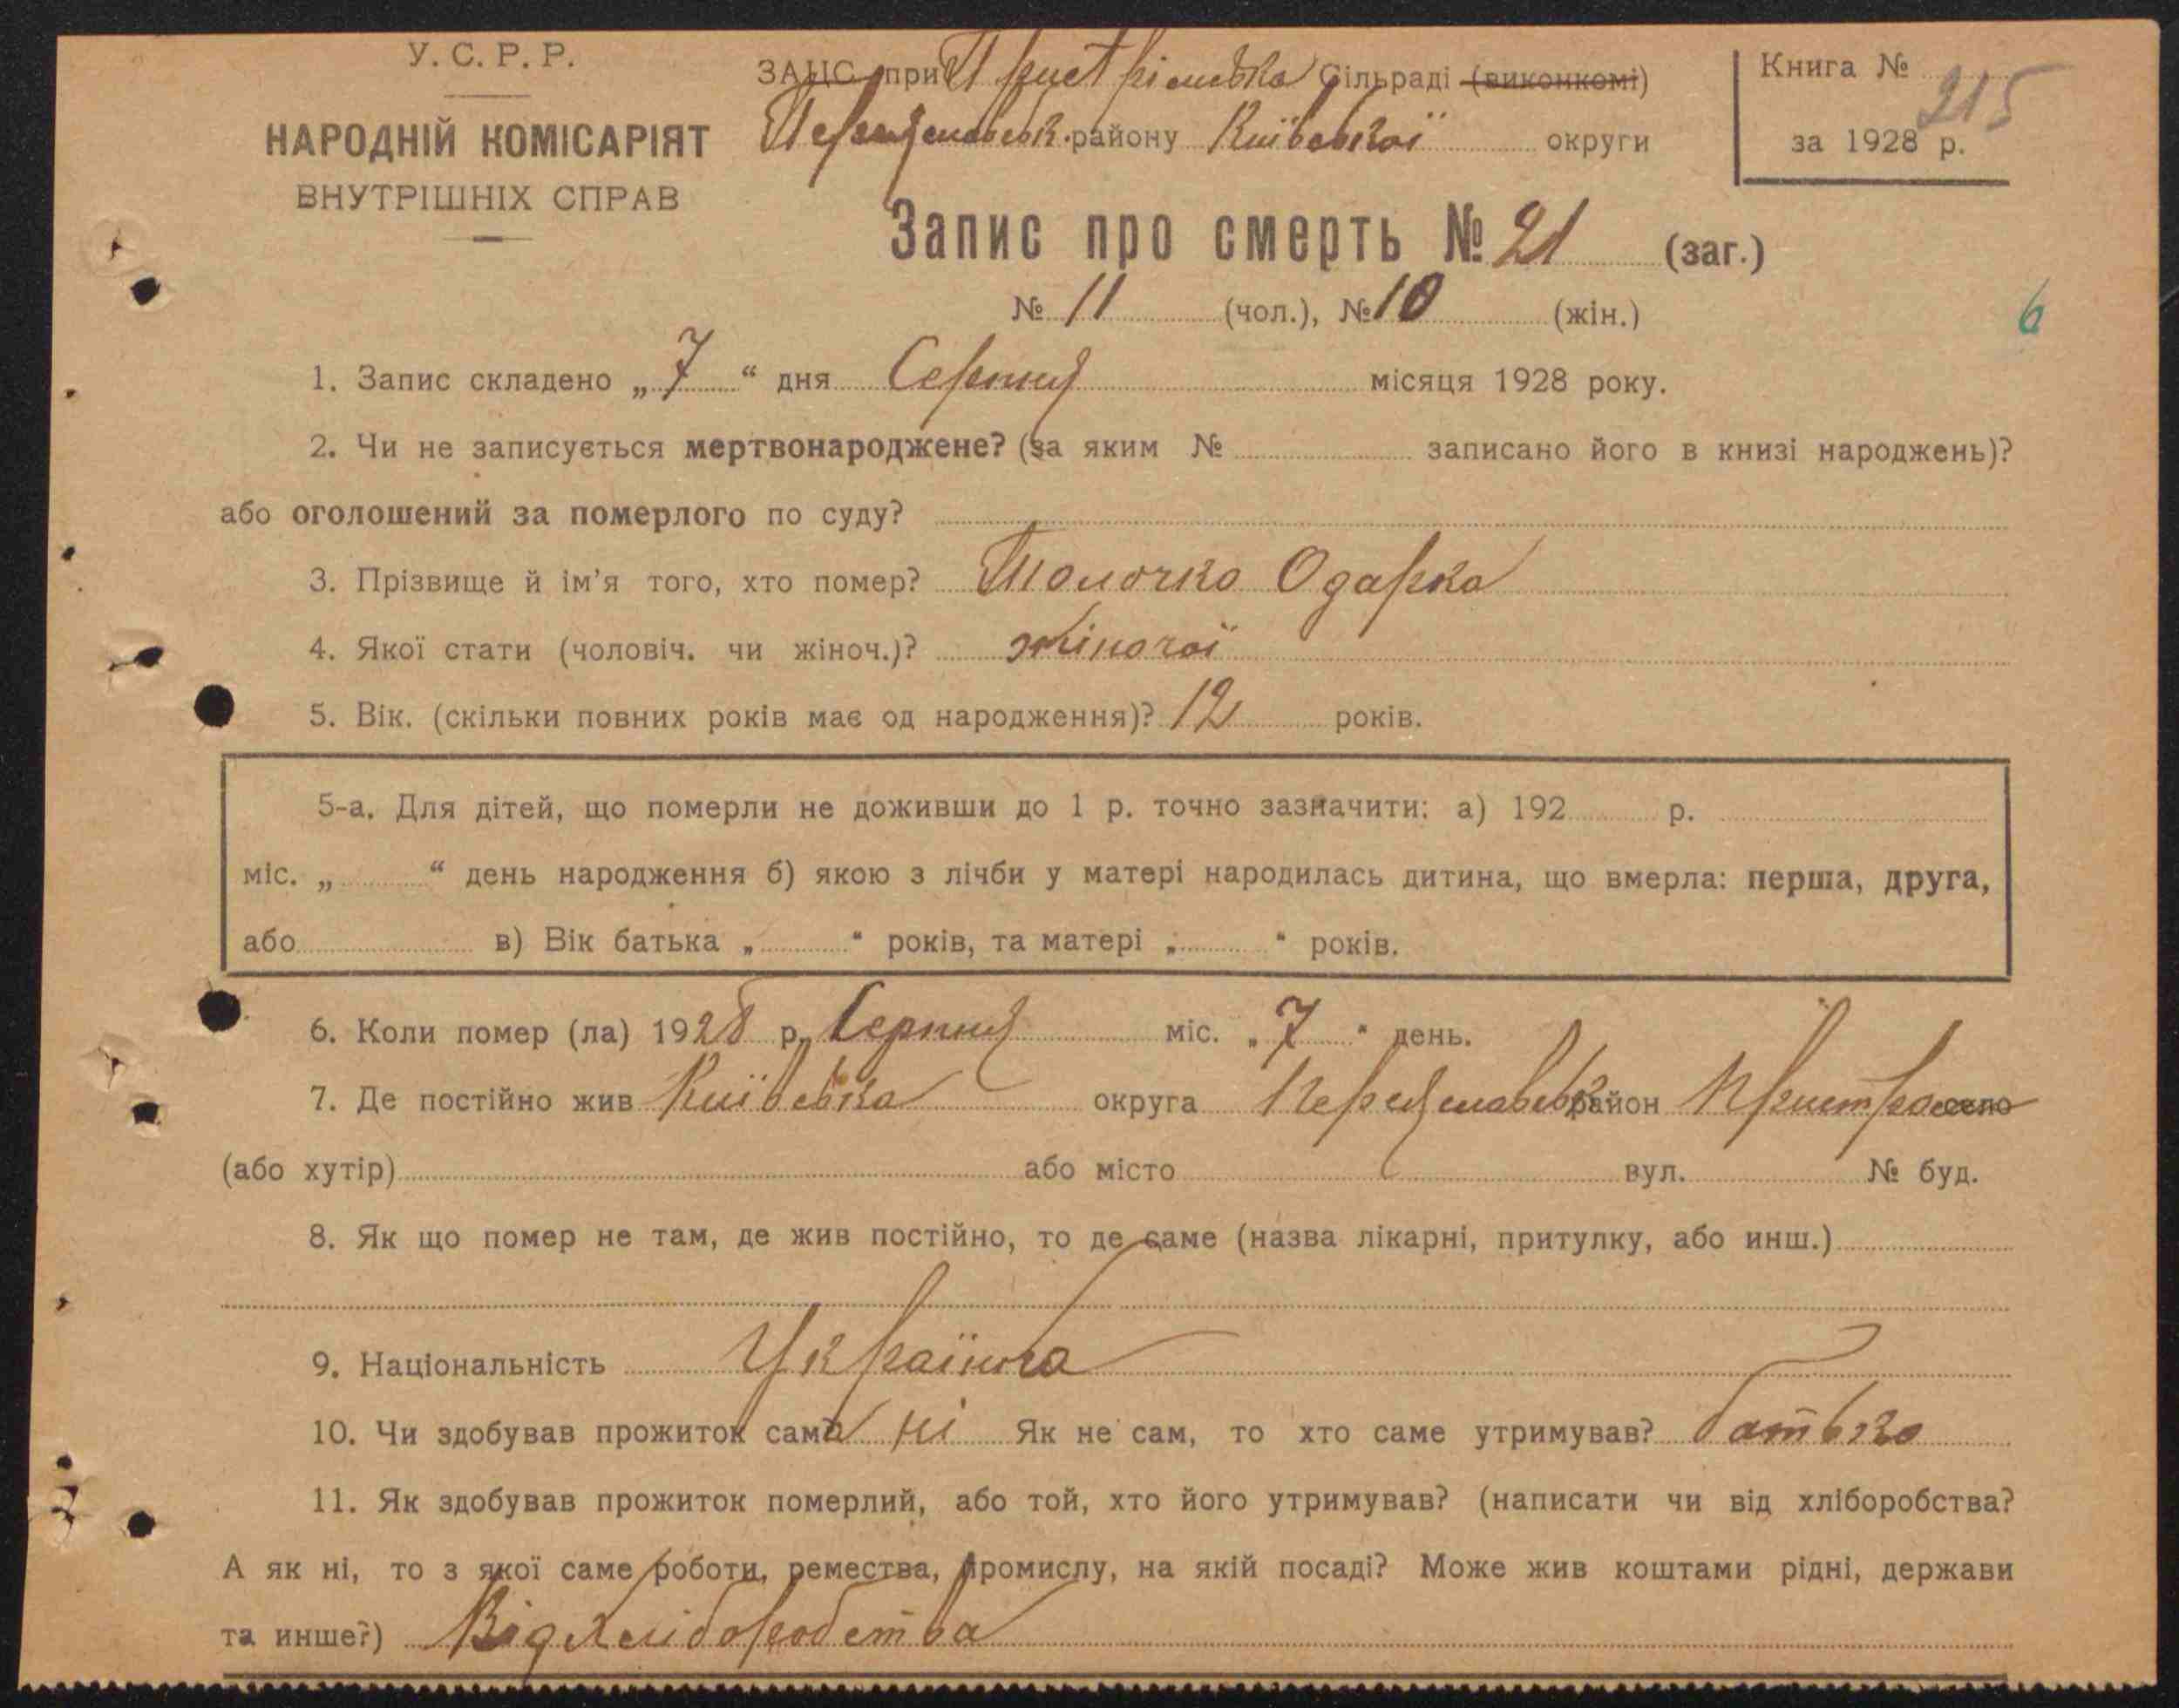 У. С. Р. Р.
НАРОДНІЙ КОМІСАРІЯТ
ВНУТРІШНІХ СПРАВ
ЗАЦС при Пристрімська Сільраді (виконкомі)
Переяславськ. району Київської округи
Книга №
215
за 1928 р.
Запис про смерть № 21 (заг.)
№ 11 (чол.), № 10 (жін.)
6
1. Запис складено „ 7 “ дня Серпня місяця 1928 року.
2. Чи не записується мертвонароджене? (за яким № записано його в книзі народжень)?
або оголошений за померлого по суду?
3. Прізвище й ім’я того, хто помер? Толочко Одарка
4. Якої стати (чоловіч. чи жіноч.)? жіночої
5. Вік. (скільки повних років має од народження)? 12 років.
5-а. Для дітей, що померли не доживши до 1 р. точно зазначити: а) 192 р.
міс. „ “ день народження б) якою з лічби у матері народилась дитина, що вмерла: перша, друга,
або в) Вік батька „ “ років, та матері „ “ років.
6. Коли помер (ла) 1928 р. Серпня міс. „ 7 “ день.
7. Де постійно жив Київська округа Переяславськ район село
(або хутір) або місто вул. № буд.
8. Як що помер не там, де жив постійно, то де саме (назва лікарні, притулку, або инш.)
9. Національність Українка
10. Чи здобував прожиток сама ні Як не сам, то хто саме утримував? батько
11. Як здобував прожиток померлий, або той, хто його утримував? (написати чи від хліборобства?
А як ні, то з якої саме роботи, ремества, промислу, на якій посаді? Може жив коштами рідні, держави
та инше?) Від хліборобства